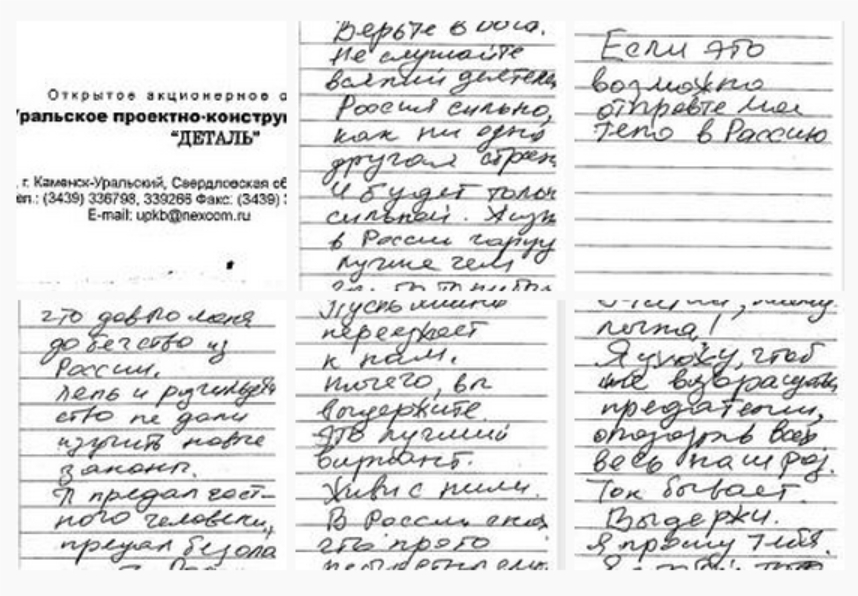 Открытое акционерное о
Уральское проектно-констру
"ДЕТАЛЬ"
, г. Каменск-Уральский, Свердловская об
ел.: (3439) 336798, 339266 Факс: (3439)
E-mail: upkb@nexcom.ru
Верьте в Бога.
Не слушайте
Россия сильно,
как ни одна
другая стран
И будет тольк
сильней. Жизн
в России
лучше чем
Если это
возможно
отправте мое
тело в Россию
что довело меня
до бегства из
России.
Лень и
ство не дали
изучить новые
законы.
Я предал чест-
ного человека,
предал
Пусть
переезжает
к нам.
Ничего, вы
выдержите.
Это лучший
вариант.
Живи с ними.
В России
что просто
почта!
Я ухожу, чтоб
не
предателем,
опозорив всех
весь наш род.
Так бывает.
Выдержи.
Я прошу тебя.